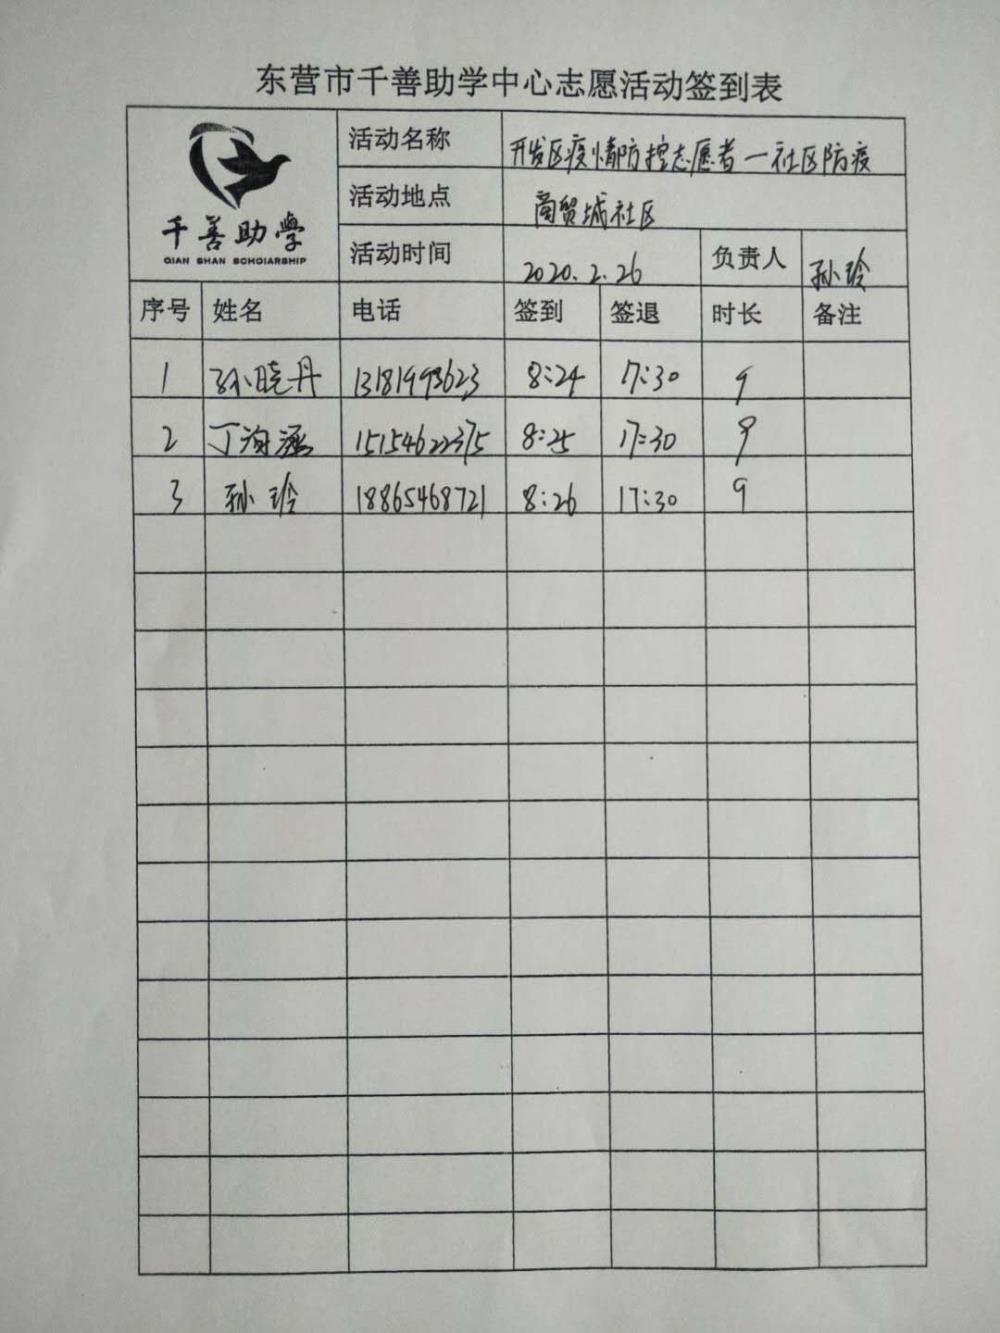 东营市千善助学中心志愿活动签到表
千善助学
QIAN SHAN SCHOIARSHIP
活动名称 开发区疫情防控志愿者一社区防疫
活动地点 商贸城社区
活动时间 2020.2.26 负责人 孙玲
序号 姓名 电话 签到 签退 时长 备注
1 孙晓丹 13181993623 8:24 17:30 9
2 丁海涵 15154622375 8:25 17:30 9
3 孙玲 18865468721 8:26 17:30 9